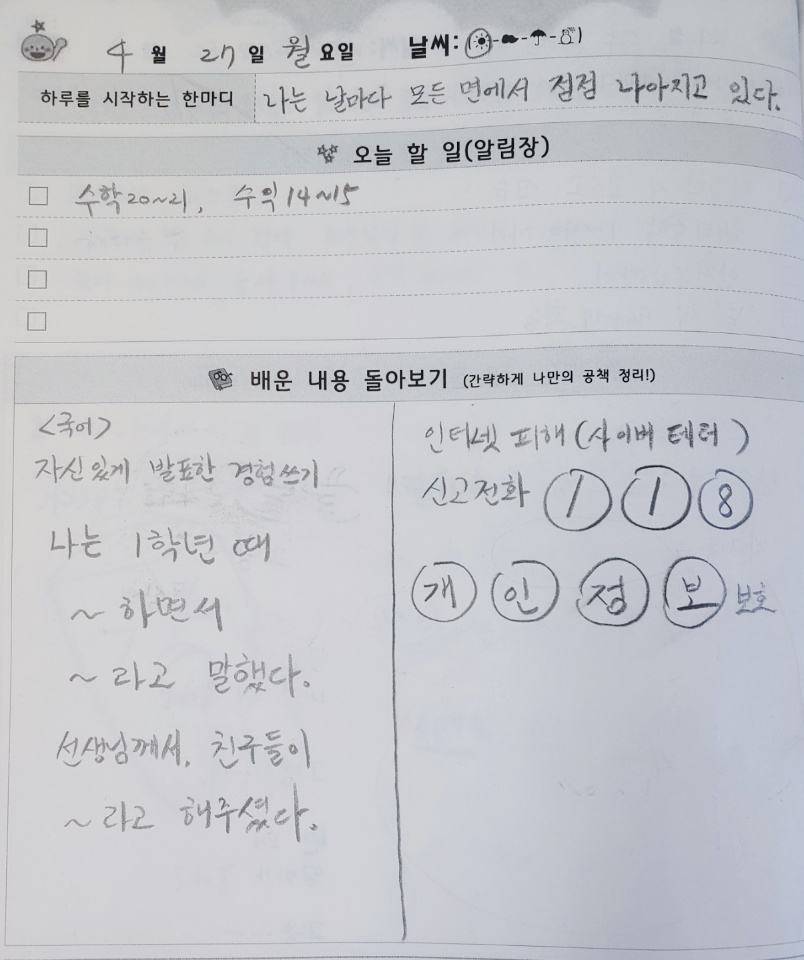 4월 27일 월요일 날씨:
하루를 시작하는 한마디 나는 날마다 모든 면에서 점점 나아지고 있다.
오늘 할 일(알림장)
수학20~21, 수익14~15
배운 내용 돌아보기 (간략하게 나만의 공책 정리!)
<국어>
자신있게 발표한 경험쓰기
나는 1학년 때
~ 하면서
~ 라고 말했다.
선생님께서, 친구들이
~ 라고 해주셨다.
인터넷 피해(사이버 테러)
신고전화 1 1 8
개 인 정 보 보호